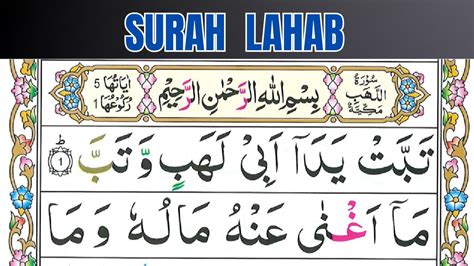 SURAH LAHAB
سُوْرَةُ
اللَّهَبِ
مَكِّيَّةٌ
بِسْمِ اللّٰهِ الرَّحْمٰنِ الرَّحِيْمِ
اٰيَاتُهَا 5
رُكُوْعُهَا 1
تَبَّتْ يَدَاۤ اَبِىْ لَهَبٍ وَّ تَبَّ ؕ ۝۱
مَاۤ اَغْنٰى عَنْهُ مَالُهٗ وَمَا